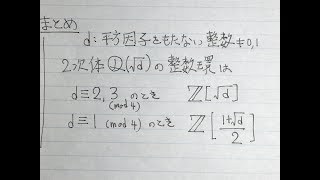 まとめ
d:平方因子をもたない整数≠0,1
2次体ℚ(√d)の整数環は
d≡2,3 (mod 4) のとき ℤ[√d]
d≡1 (mod 4) のとき ℤ[(1+√d)/2]